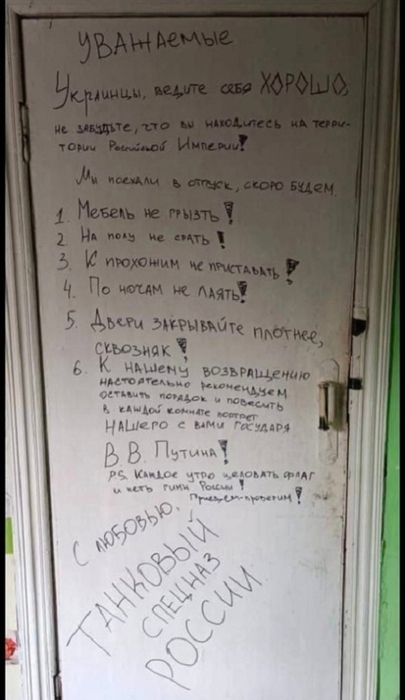 УВАЖАЕМЫЕ
Украинцы, ведите себя ХОРОШО,
не забудьте, что вы находитесь на терри-
тории Российской Империи!
Мы поехали в отпуск, скоро будем
1. Мебель не грызть!
2. На полу не срать!
3. К прохожим не приставать!
4. По ночам не лаять!
5. Двери закрывайте плотнее,
сквозняк!
6. К нашему возвращению
настоятельно рекомендуем
оставить порядок и повесить
в каждой комнате портрет
нашего с вами государя
В.В. Путина!
P.S. Каждое утро целовать флаг
и петь гимн России!
Приедем-проверим!
С любовью,
ТАНКОВЫЙ
СПЕЦНАЗ
РОССИИ